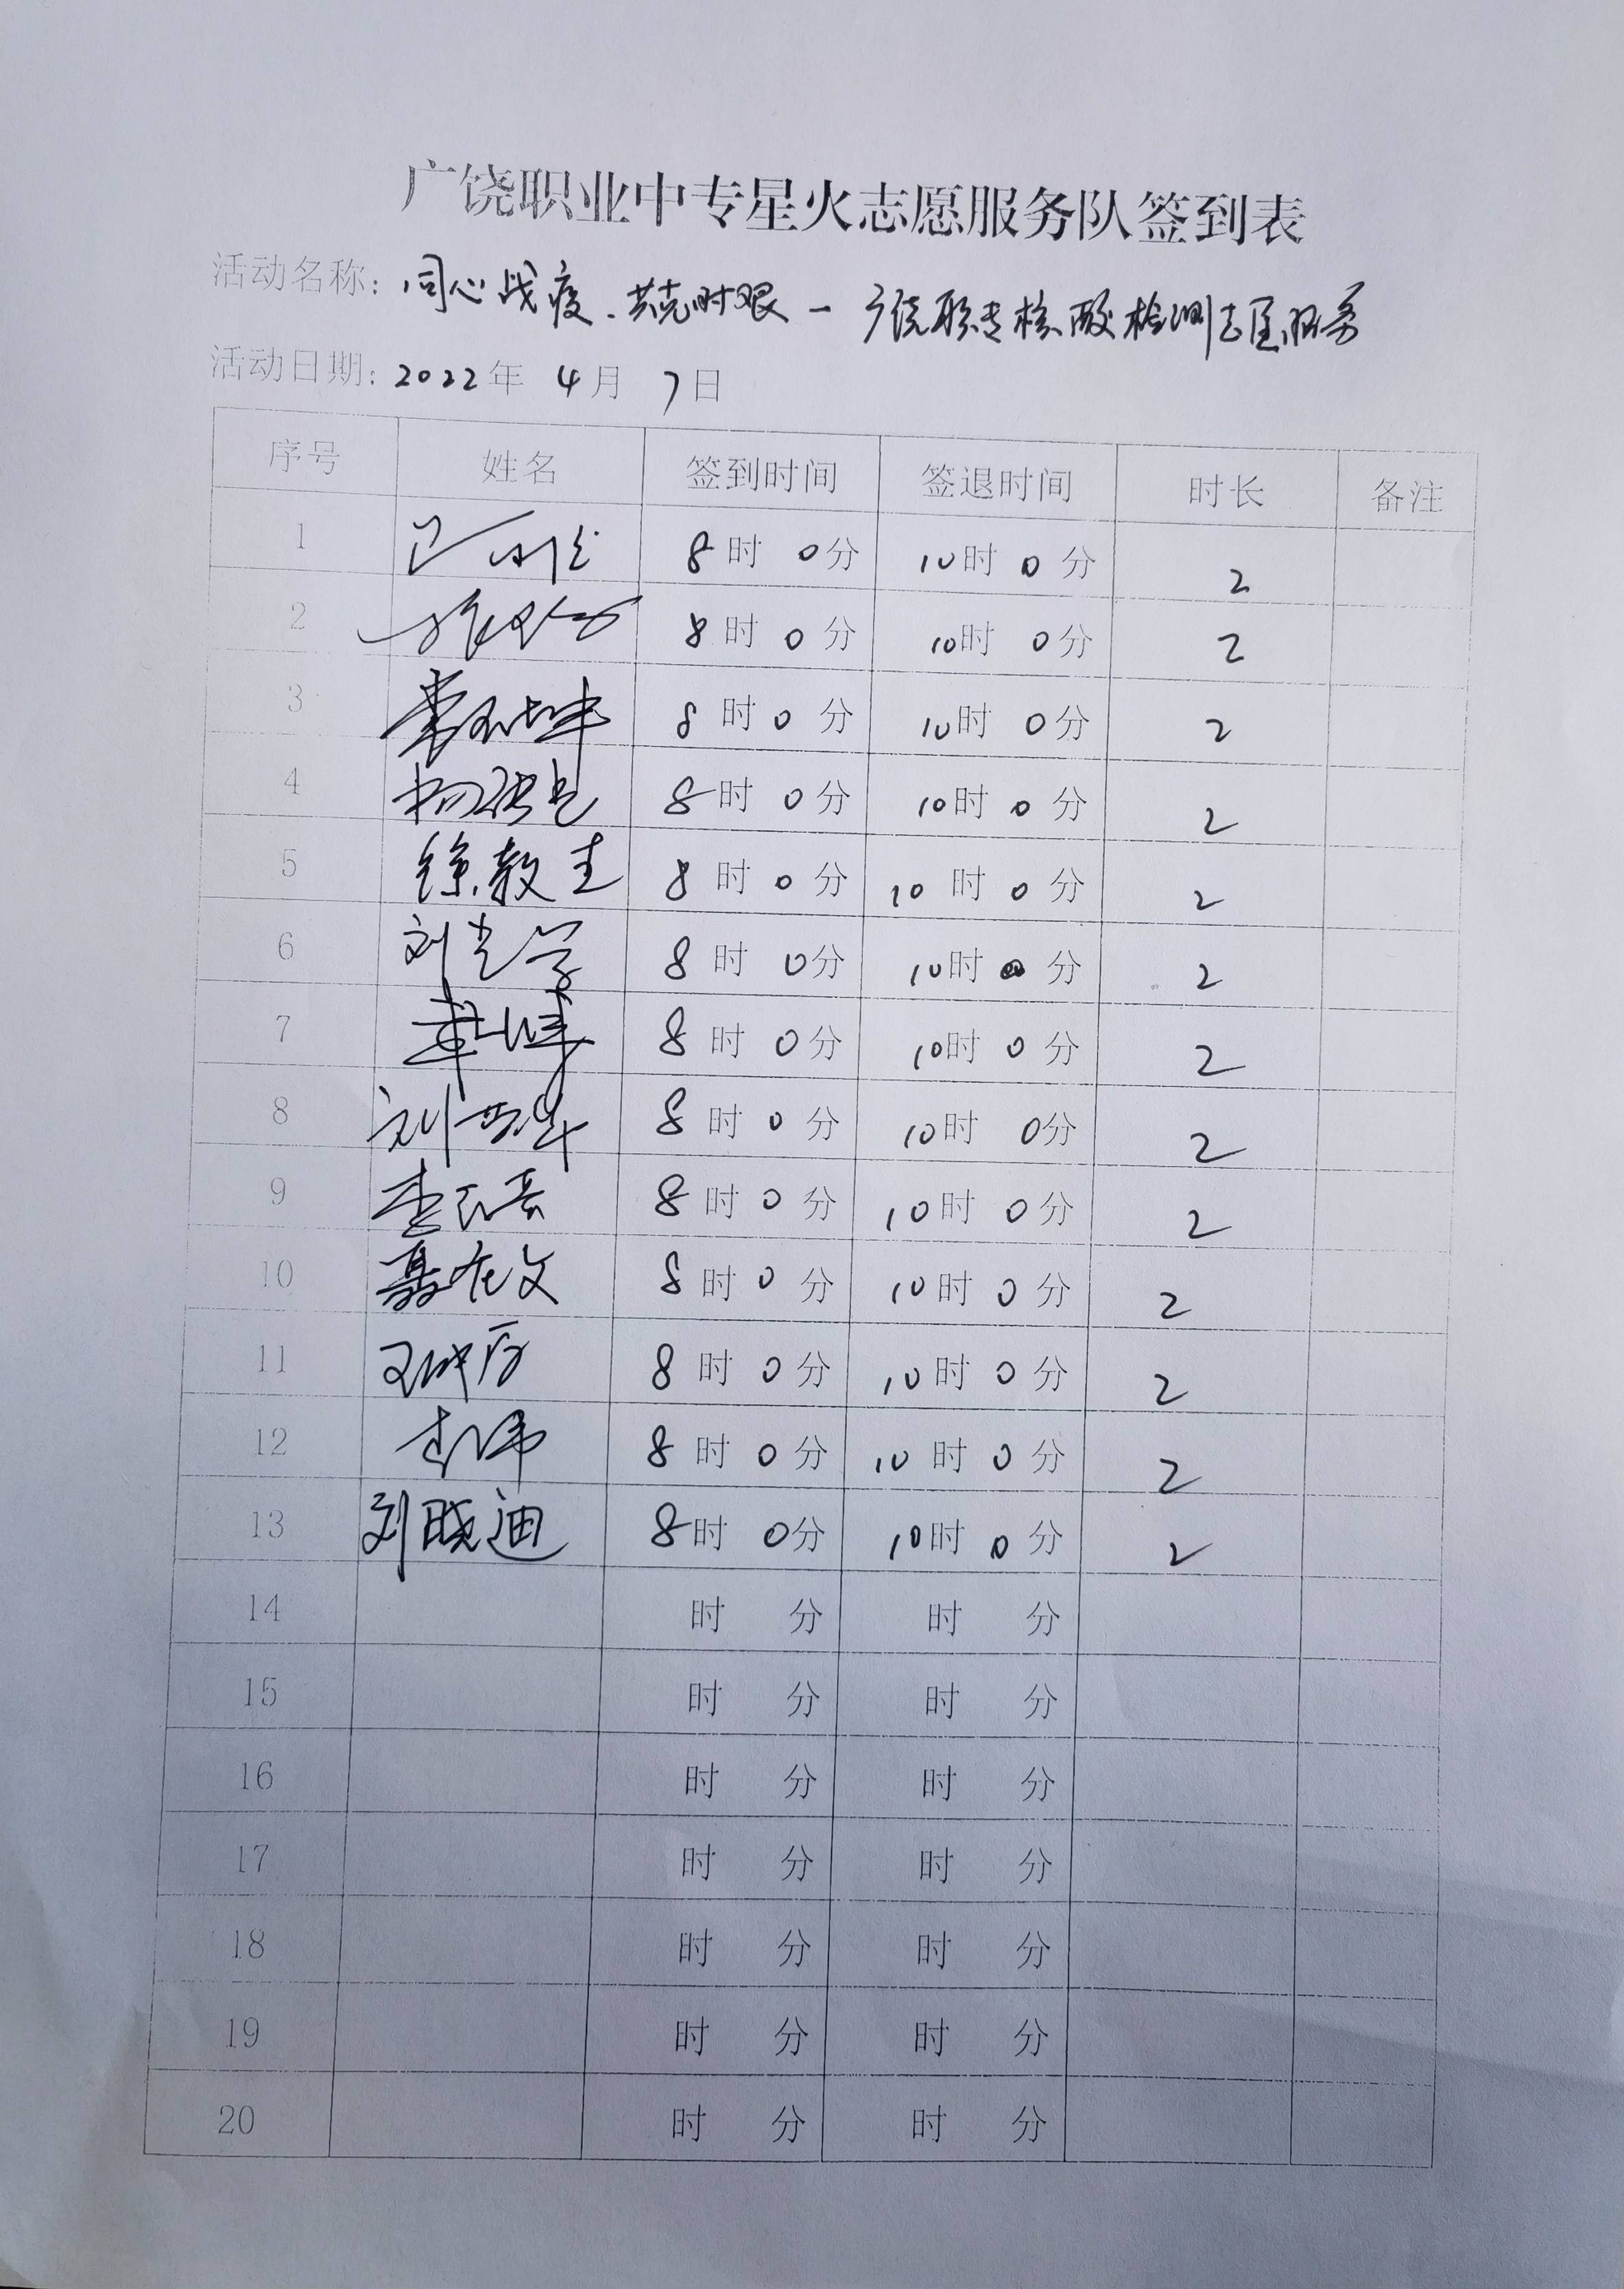 广饶职业中专星火志愿服务队签到表
活动名称：同心战疫.共克时艰－广饶职专核酸检测志愿服务
活动日期：2022年 4月 7日
序号 姓名 签到时间 签退时间 时长 备注
1 8时 0分 10时 0分 2
2 8时 0分 10时 0分 2
3 8时 0分 10时 0分 2
4 8时 0分 10时 0分 2
5 徐教圭 8时 0分 10时 0分 2
6 刘光学 8时 0分 10时 0分 2
7 8时 0分 10时 0分 2
8 8时 0分 10时 0分 2
9 8时 0分 10时 0分 2
10 8时 0分 10时 0分 2
11 8时 0分 10时 0分 2
12 李伟 8时 0分 10时 0分 2
13 刘晓迪 8时 0分 10时 0分 2
14 时 分 时 分
15 时 分 时 分
16 时 分 时 分
17 时 分 时 分
18 时 分 时 分
19 时 分 时 分
20 时 分 时 分